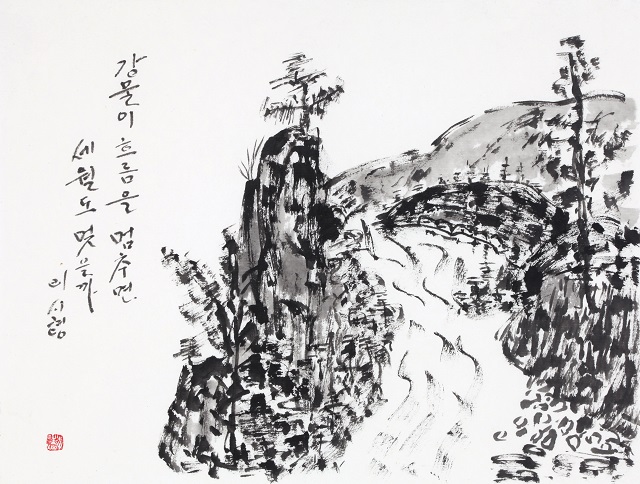 강물이 흐름을 멈추면
세월도 멎을까
이시형